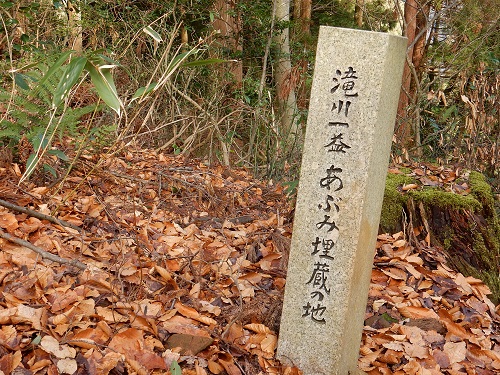 滝川一益あぶみ埋蔵の地